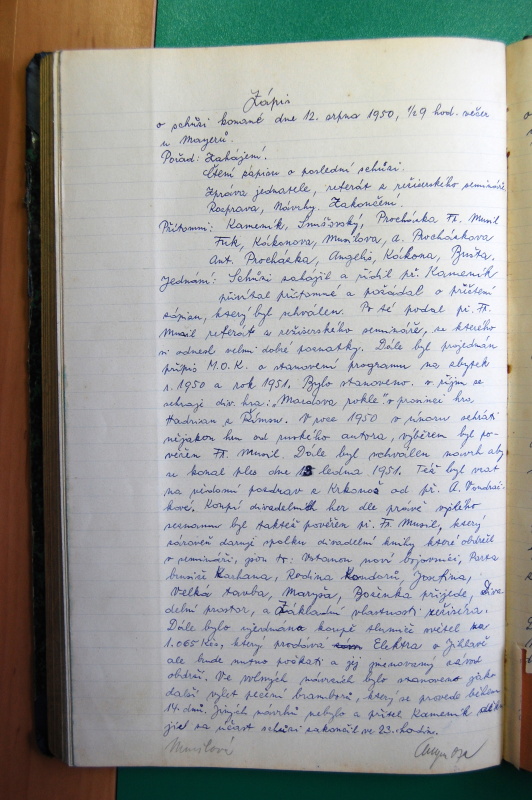 Zápis
o schůzi konané dne 12. srpna 1950, 1/2 9 hod. večer
u Mayerů.
Pořad: Zahájení.
Čtení zápisu o poslední schůzi.
Zpráva jednatele, referát z režisérského semináře
Rozprava, Návrhy. Zakončení.
Přítomni: Kameník, Procházka Fr. Musil
Fuk, Kákonova, Musilova, A. Procházkova
Ant. Procházka, Angelis, Kákona, Bušta.
Jednání: Schůzi zahájil a řídil př. Kameník
přivítal přítomné a požádal o přečtení
zápisu, který byl schválen. Po té podal př. Fr.
Musil referát z režisérského semináře, ze kterého
si odnesl velmi dobré poznatky. Dále byl projednán
přípis M.O.K. o stanovení programu na zbytek
r. 1950 a rok 1951. Bylo stanoveno. v říjnu se
sehraje div. hra: „Maryšova v prosinci hra
Hadrian z Římsů. V roce 1950 v únoru sehráti
nějakou hru od ruského autora, výběrem byl po-
věřen Fr. Musil. Dále byl schválen návrh aby
se konal ples dne 13 ledna 1951. Též byl vzat
na vědomí pozdrav z Krkonoš od př. A. Vondrač-
kové. Koupí divadelních her dle právě vyšlého
seznamu byl taktéž pověřen př. Fr. Musil, který
zároveň daruje spolku divadelní knihy, které obdržel
v semináři, jsou to: Vstanou noví bojovníci, Parta
brusiče Karhana, Rodina Kondorů, Josefina,
Velká tavba, Maryša, Boženka přijede, Diva
delní prostor, a Základní vlastnosti režiséra.
Dále bylo ujednáno koupě světel za
1.065 Kčs, který prodává Elektra v Jihlavě
ale bude nutno počkati a jej jmenovaný závod
obdrží. Ve volných návrzích bylo stanoveno jako
další výlet pečení bramborů, který se provede během
14. dnů. Jiných návrhů nebylo a přítel Kameník
za účast schůzi zakončil ve 23. hodin.
Musilová